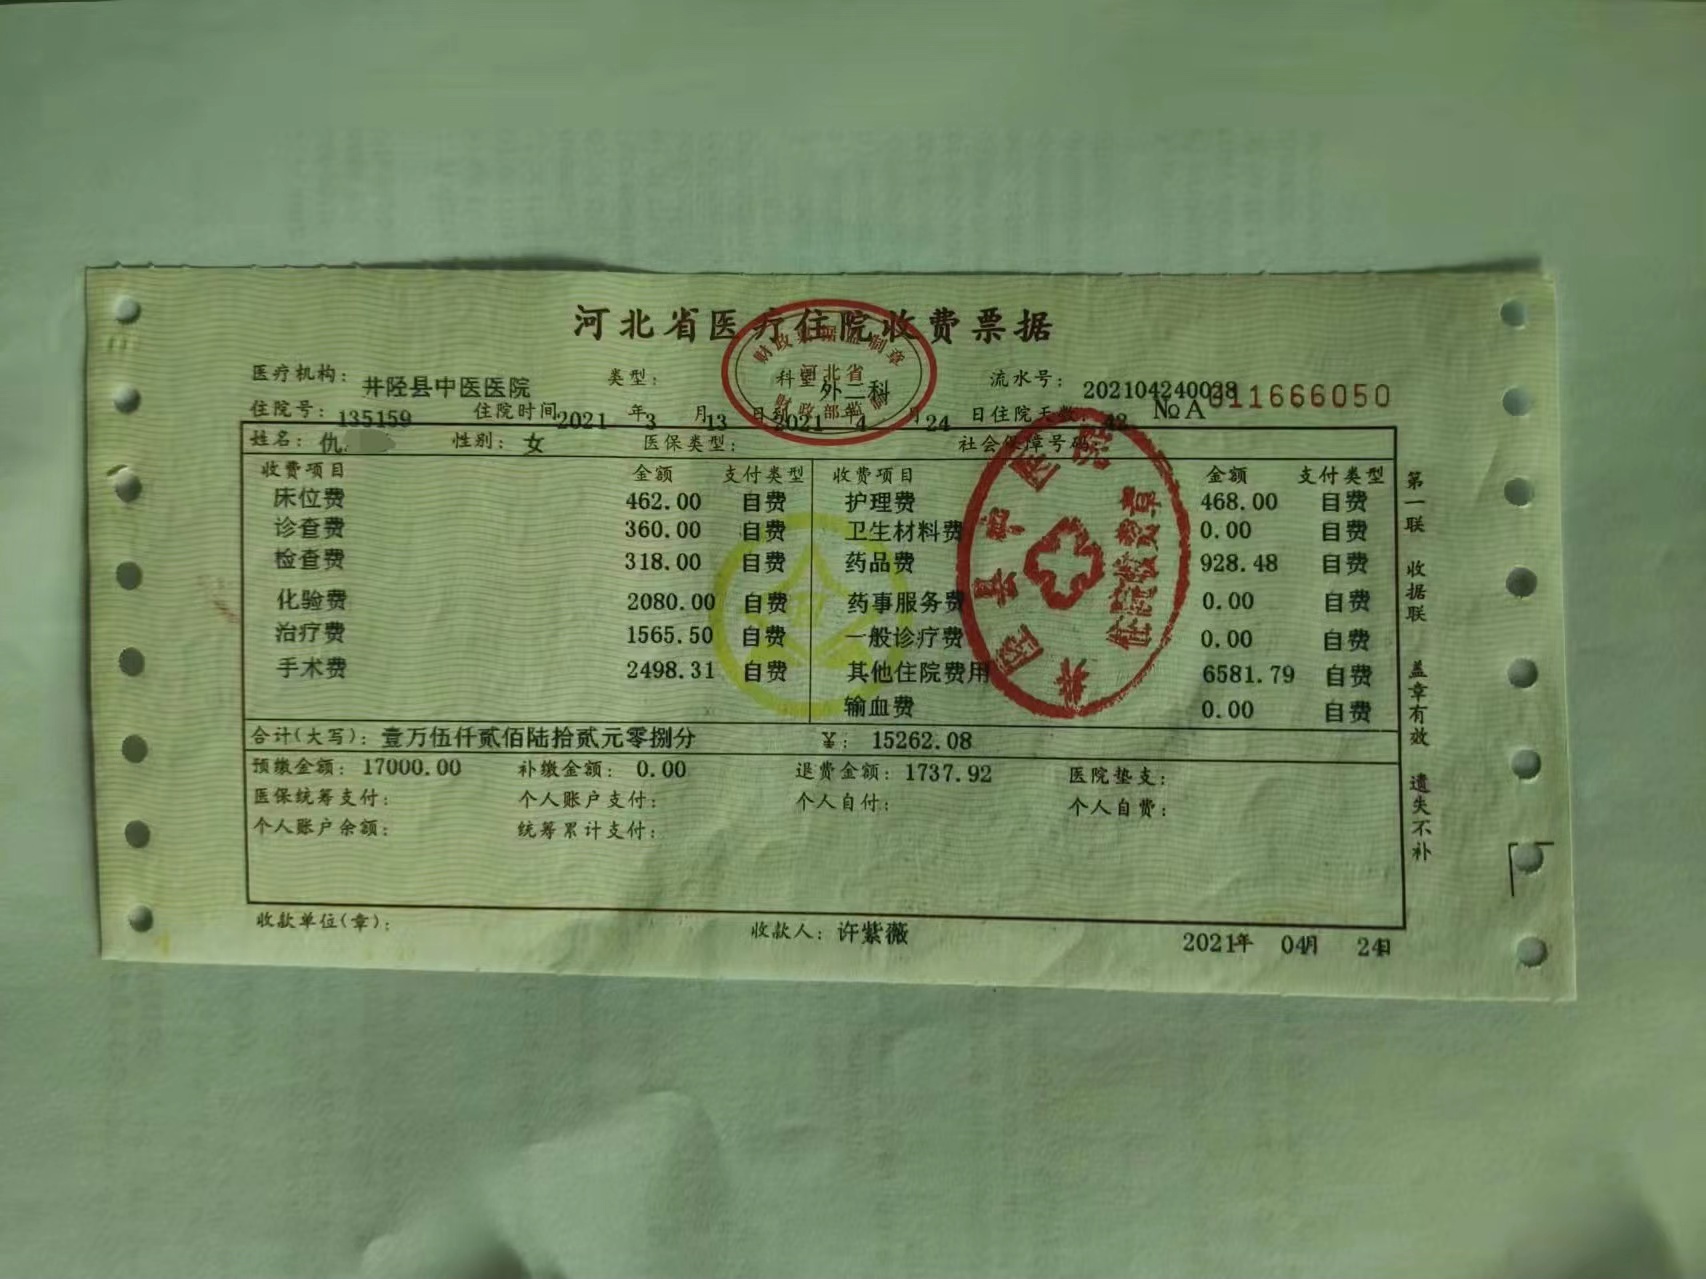 河北省医疗住院收费票据
医疗机构: 井陉县中医医院 类型: 科室 外二科 流水号: 202104240038
住院号: 135159 住院时间 2021 年 3 月 13 日到 2021 年 4 月 24 日住院天数: 42 №A 011666050
财政票据监制章
河北省
财政部监制
姓名: 仇 性别: 女 医保类型: 社会保障号码:
收费项目 金额 支付类型 收费项目 金额 支付类型
床位费 462.00 自费 护理费 468.00 自费
诊查费 360.00 自费 卫生材料费 0.00 自费
检查费 318.00 自费 药品费 928.48 自费
化验费 2080.00 自费 药事服务费 0.00 自费
治疗费 1565.50 自费 一般诊疗费 0.00 自费
手术费 2498.31 自费 其他住院费用 6581.79 自费
输血费 0.00 自费
井陉县中医医院
住院收费章
合计(大写): 壹万伍仟贰佰陆拾贰元零捌分 ¥: 15262.08
预缴金额: 17000.00 补缴金额: 0.00 退费金额: 1737.92 医院垫支:
医保统筹支付: 个人账户支付: 个人自付: 个人自费:
个人账户余额: 统筹累计支付:
收款单位(章): 收款人: 许紫薇 2021年 04月 24日
第一联 收据联 盖章有效 遗失不补